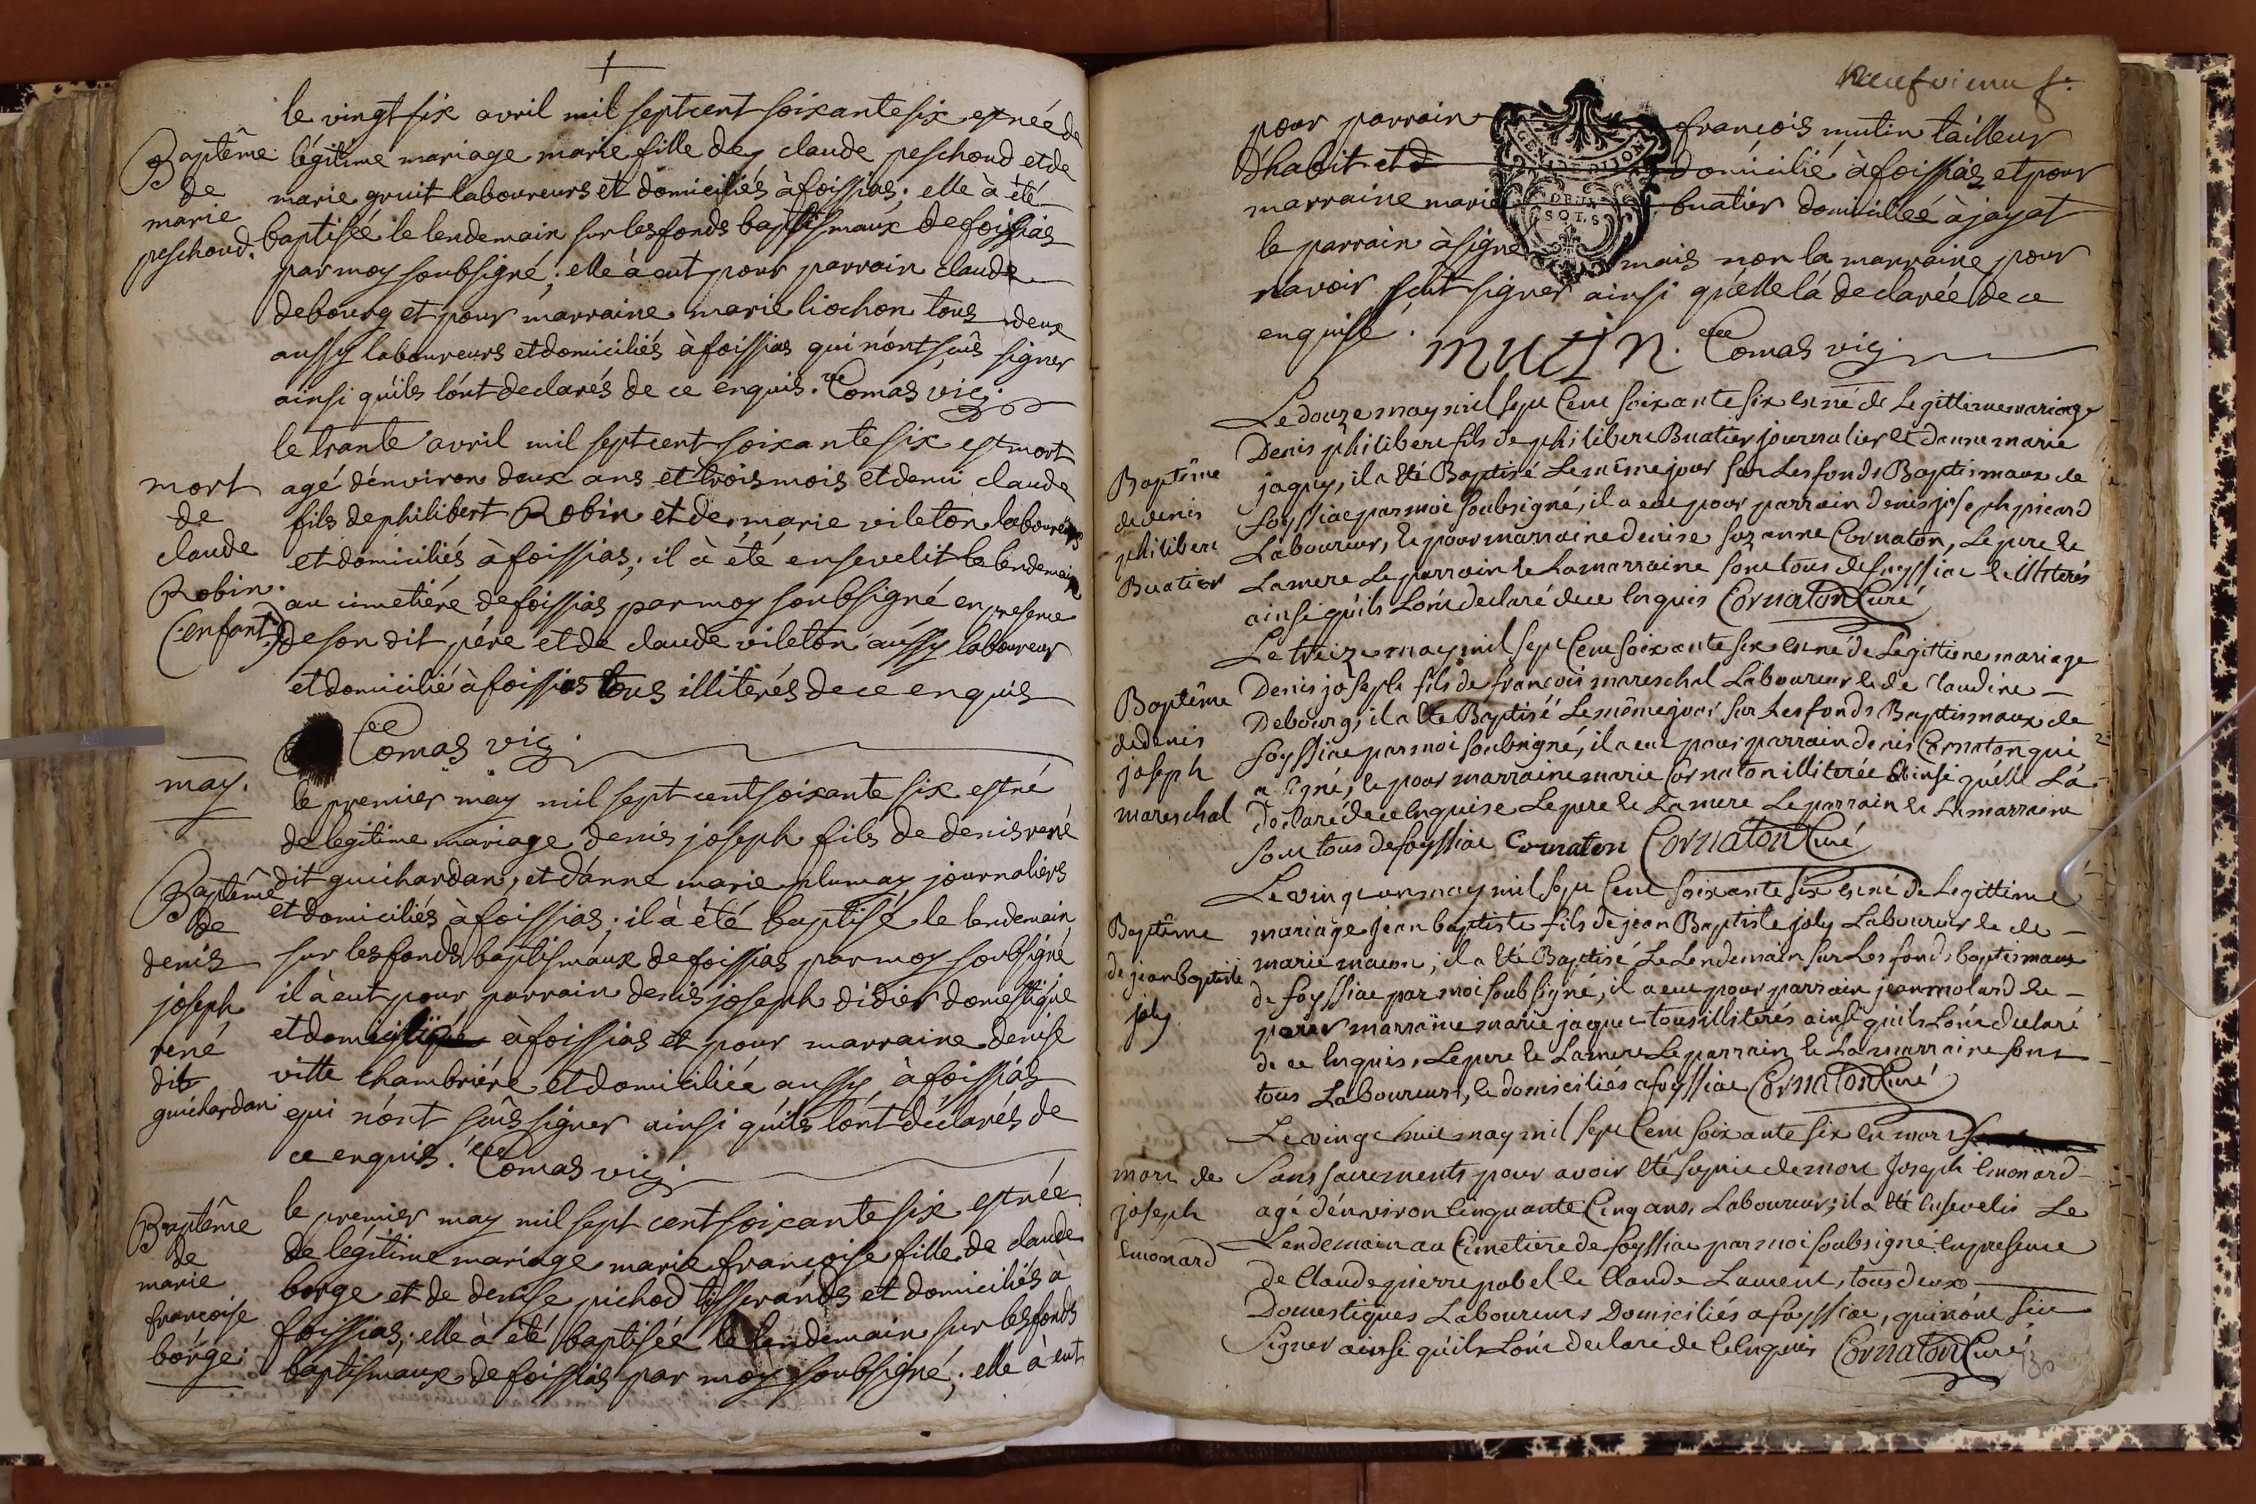 le vingt six avril mil septcent soixante six est née de
Baptême
de
marie
peschoud.
légitime mariage marie fille de claude peschoud et de
marie gruit laboureurs et domiciliés à foissias; elle à été
baptisée le lendemain sur les fonds baptismaux de foissias
par moy soubsigné; elle à eut pour parrain claude
debourg et pour marraine marie liochon tous deux
aussy laboureurs et domiciliés à foissias qui n'ont sçûs signer
ainsi qu'ils l'ont declarés de ce enquis. Comas vic;
le trante avril mil septcent soixante six est mort
mort
de
claude
Robin.
(enfant)
agé d'environ deux ans et trois mois et demi claude
fils de philibert Robin et de marie vileton laboureurs
et domiciliés à foissias; il à été ensevelit le lendemain
au cimetiére de foissias par moy soubsigné en presence
de son dit pére et de claude vileton aussy laboureur
et domicilié à foissias tous illiterés de ce enquis
Comas vic;
may.
le premier may mil sept cent soixante six est né
de legitime mariage denis joseph fils de denis rené
Baptême
de
denis
joseph
rené
dit
guichardan
dit guichardan, et d'anne marie plumay journaliers
et domiciliés à foissias; il à été baptisé le lendemain
sur les fonds baptismaux de foissias par moy soubsigné
il à eut pour parrain denis joseph didier domestique
et domicilié à foissias et pour marraine denise
vitte chambriére et domiciliée aussy à foissias
qui n'ont sçûs signer ainsi qu'ils l'ont déclarés de
ce enquis. Comas vic;
Baptême
de
marie
françoise
borge.
le premier may mil sept cent soixante six est née
de légitime mariage marie françoise fille de claude
borge et de denise pichod tisserands et domiciliés à
foissias; elle à été baptisée le lendemain sur les fonds
baptismaux de foissias par moy soubsigné; elle à eut
Neufvieme f.
pour parrain françois mutin tailleur
d'habit et domicilié à foissias et pour
GEN DE DIJON
DEUX
SOLS
marraine marie buatier domiciliée à jayat
le parrain à signé mais non la marraine pour
n'avoir sçut signer ainsi qu'elle l'à declarée de ce
enquise.
MUTIN. Comas vic;
Le douze may mil sept Cent soixante six est né de Legittime mariage
Baptême
de denis
philibert
Buatier
Denis philibert fils de philibert Buatier journalier et d'anne marie
jaquy, il a été Baptisé Le même jour sur Les fonds Baptismaux de
foyssiac par moi soubsigné, il a eut pour parrain denis joseph picard
Laboureur, et pour marraine denise suzanne Cornaton, Le pere et
La mere Le parrain et La marraine sont tous de foyssiac et illiterés
ainsi qu'ils L'ont declaré de ce Enquis Cornaton Curé
Le treize may mil sept Cent soixante six est né de Legittime mariage
Baptême
de denis
joseph
mareschal
Denis joseph fils de françois mareschal Laboureur et de Claudine
Debourg, il a été Baptisé Le même jour sur Les fonds Baptismaux de
foyssiac par moi soubsigné, il a eut pour parrain denis Cornaton qui
a signé, et pour marraine marie Cornaton illiterée ainsi qu'elle L'a
declaré de ce Enquise Le pere et La mere Le parrain et La marraine
sont tous de foyssiac Cornaton Cornaton Curé
Le vingt un may mil sept Cent soixante six est né de Legittime
Baptême
de jean baptiste
joly
mariage jean baptiste fils de jean Baptiste joly Laboureur et de
marie macon; il a été Baptisé Le Lendemain sur Les fonds baptismaux
de foyssiac par moi soubsigné, il a eut pour parrain jean molard et
pour marraine marie jaquet tous illiterés ainsi qu'ils L'ont declaré
de ce Enquis, Le pere et La mere Le parrain et La marraine sont
tous Laboureurs, et domiciliés a foyssiac Cornaton Curé
Le vingt huit may mil sept Cent soixante six est mort
mort de
joseph
Emonard
Sans sacrements pour avoir été surpris de mort Joseph Emonard
agé d'environ Cinquante Cinq ans, Laboureur; il a été Ensevelis Le
Lendemain au Cimetiere de foyssiac par moi soubsigné En presence
de Claude pierre pobel et Claude Laurent, tous deux
Domestiques Laboureurs Domiciliés a foyssiac, qui n'ont sçu
Signer ainsi qu'ils L'ont declaré de Ce Enquis Cornaton Curé